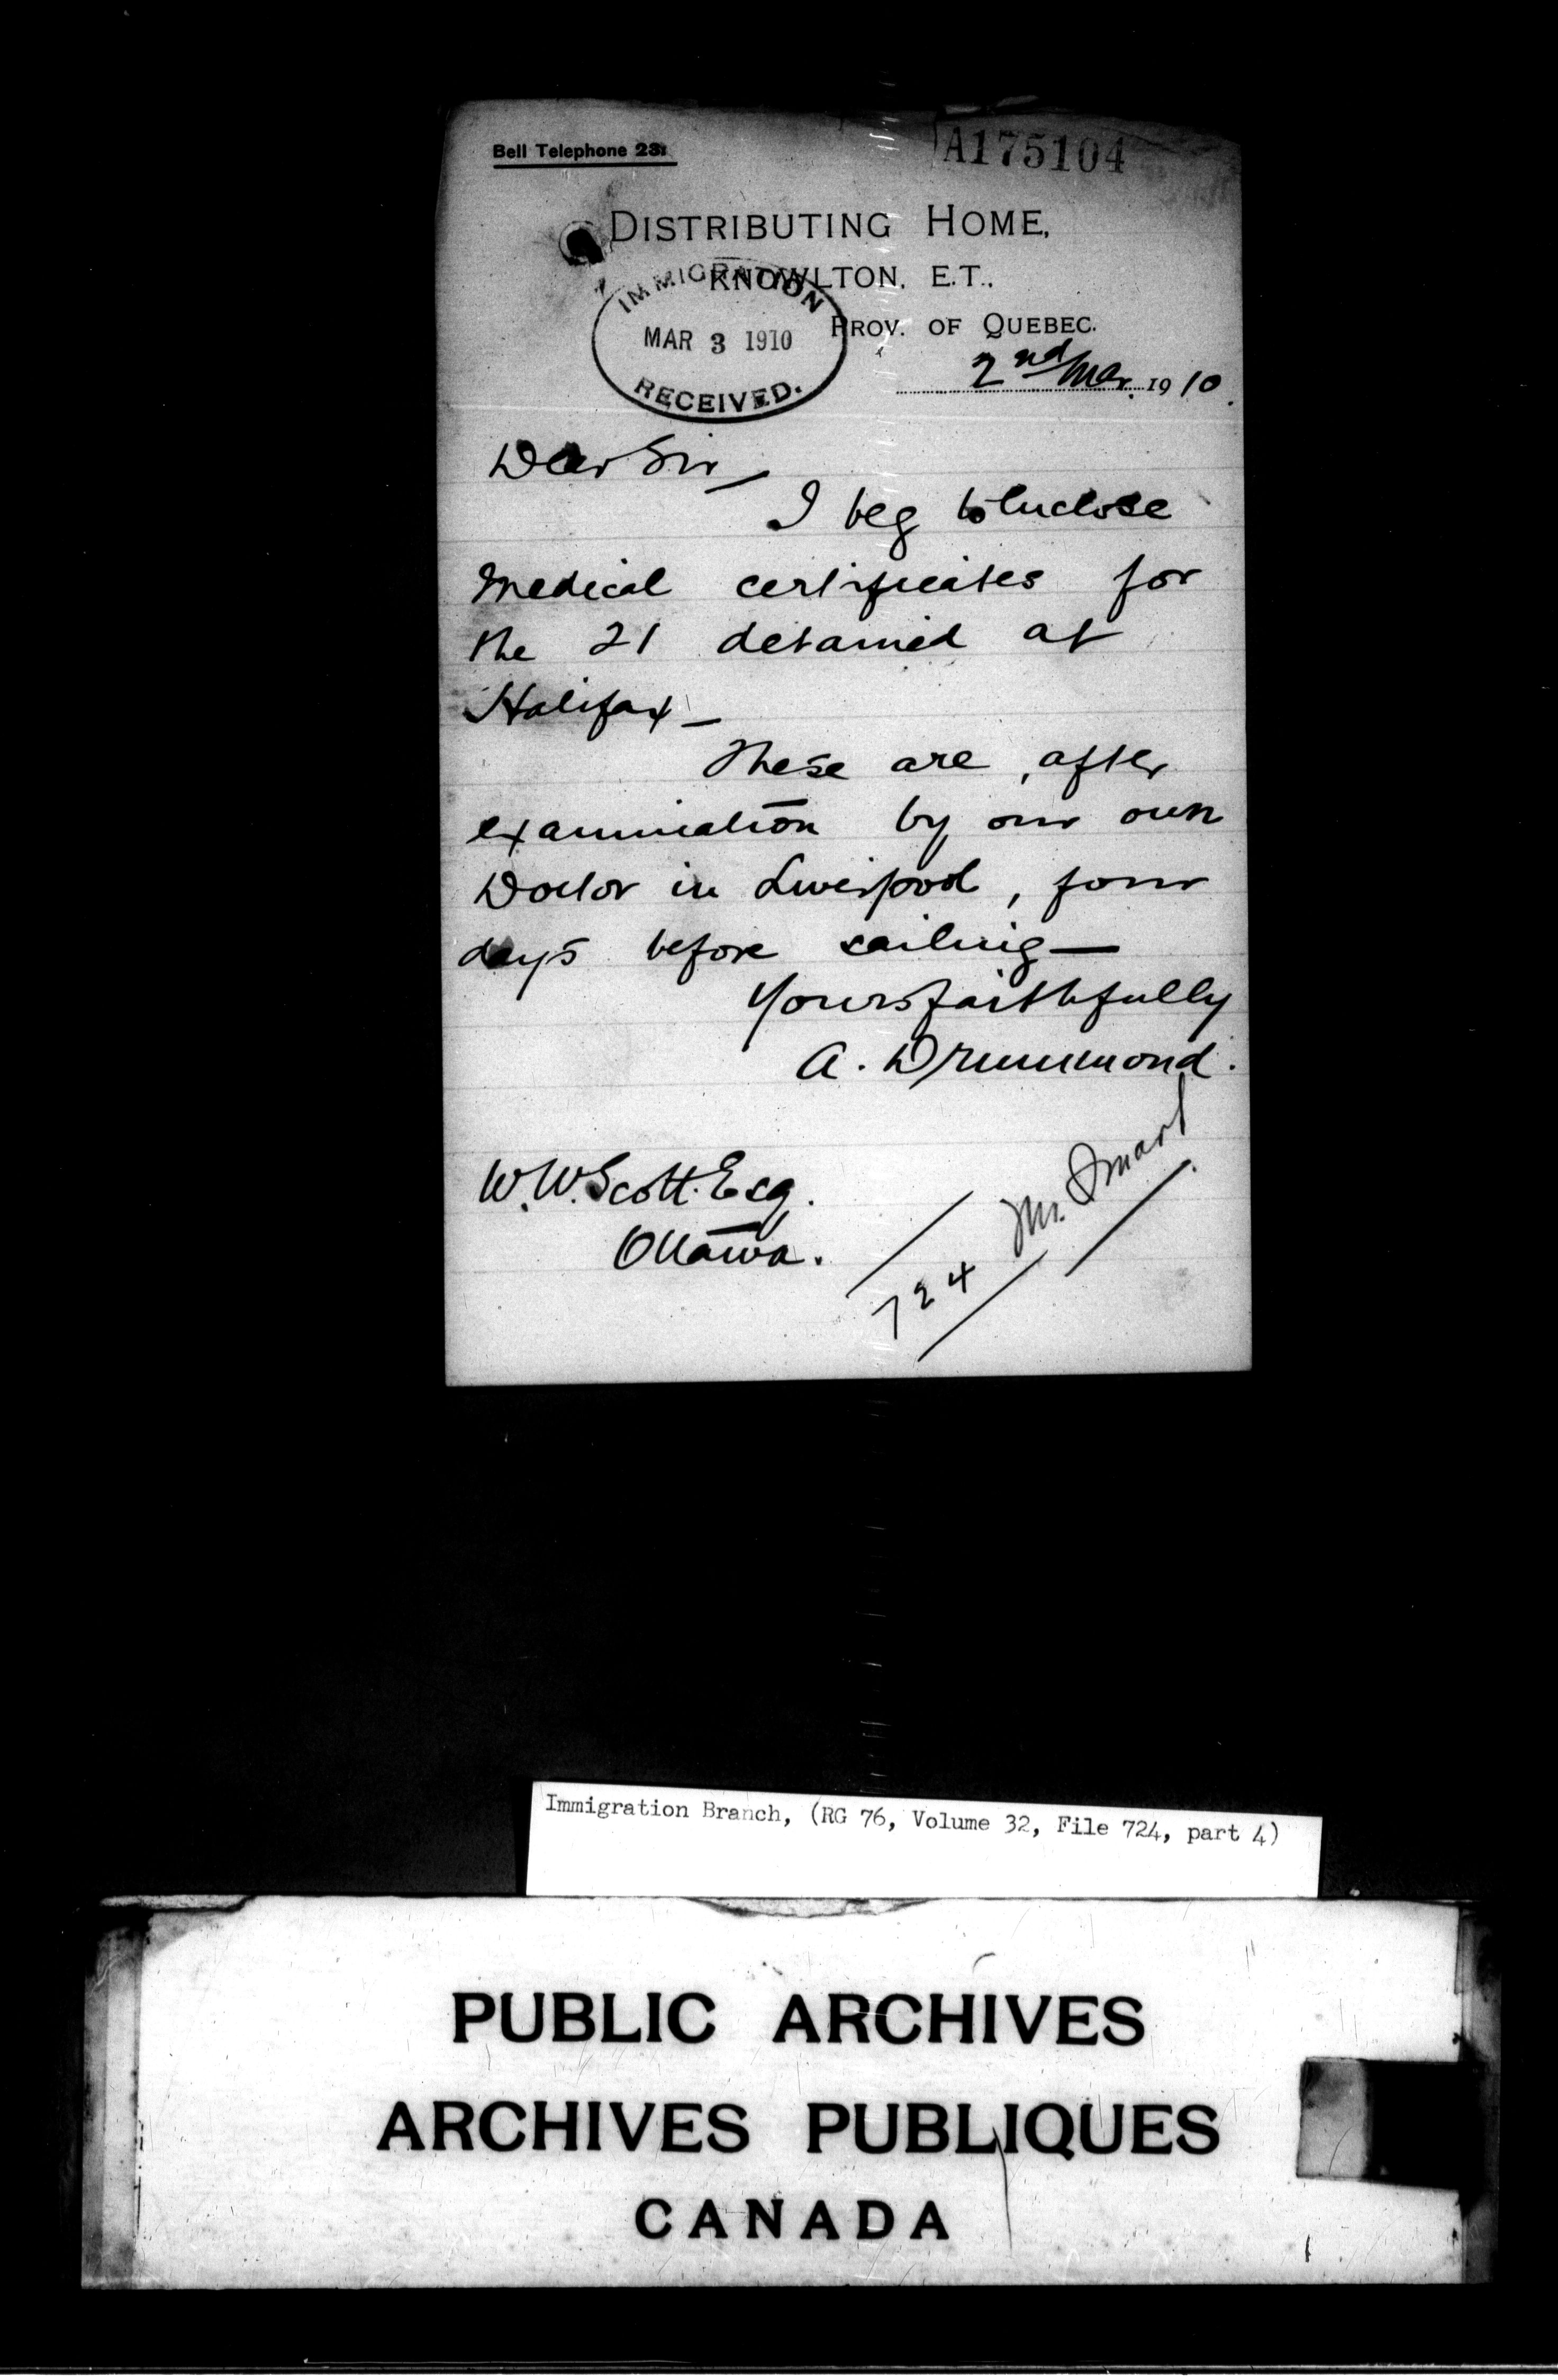 Bell Telephone 23
A175104
DISTRIBUTING HOME,
KNOWLTON, E.T.,
PROV. OF QUEBEC.
IMMIGRATION
MAR 3 1910
RECEIVED.
2nd Mar. 1910.
Dear Sir _
I beg to enclose
Medical certificates for
the 21 detained at
Halifax _
These are, after
examination by our own
Doctor in Liverpool, four
days before sailing —
Yours faithfully
A. Drummond.
W.W. Scott. Esq.
Ottawa.
724 Mr. Smart
Immigration Branch, (RG 76, Volume 32, File 724, part 4)
PUBLIC ARCHIVES
ARCHIVES PUBLIQUES
CANADA